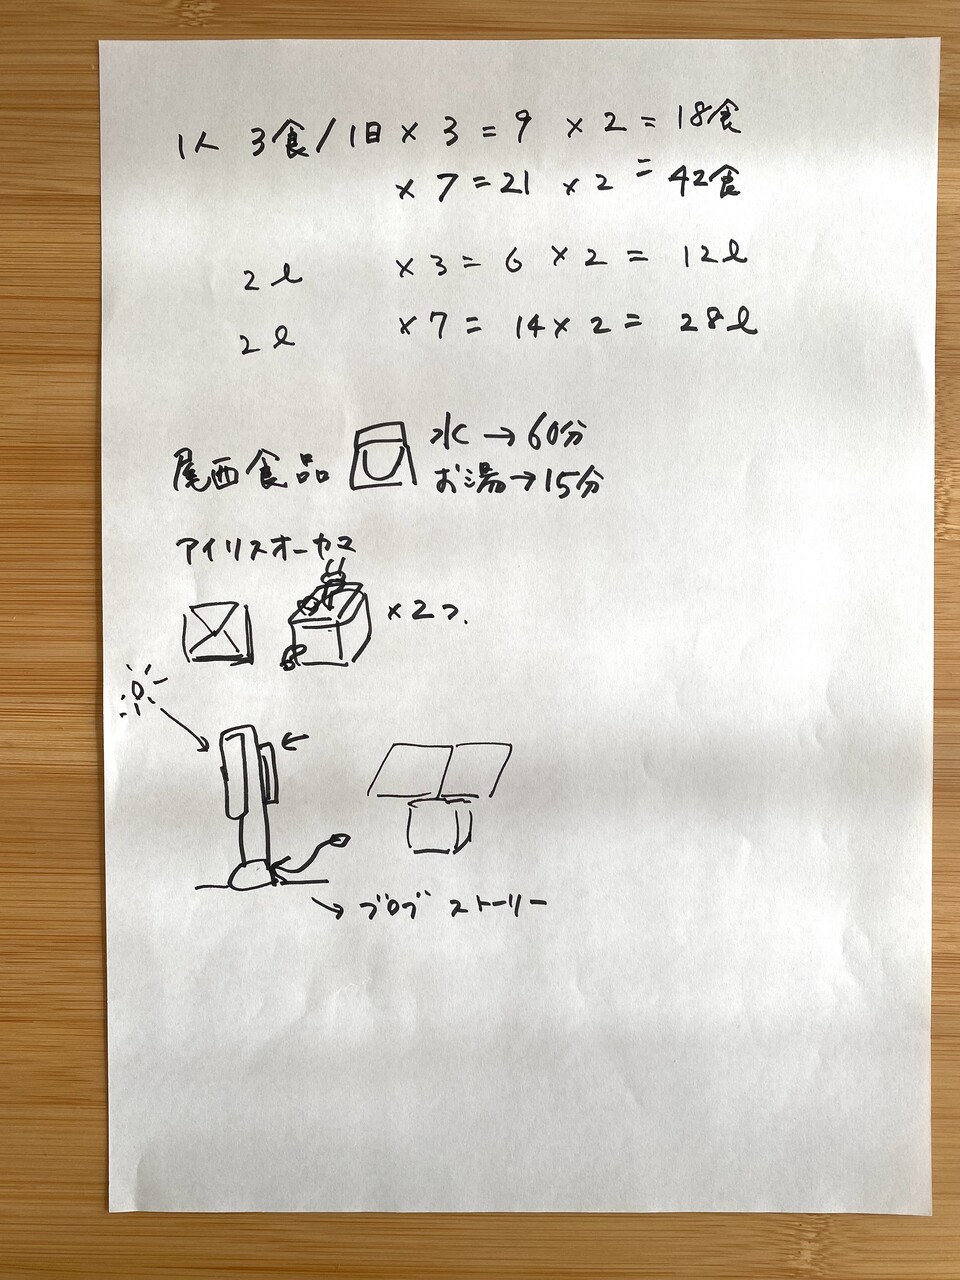 1人 3食/1日 × 3 = 9 × 2 = 18食
× 7 = 21 × 2 = 42食
2l × 3 = 6 × 2 = 12l
2l × 7 = 14 × 2 = 28l
尾西食品
水 → 60分
お湯 → 15分
アイリスオーヤマ
× 2つ.
ブログ ストーリー